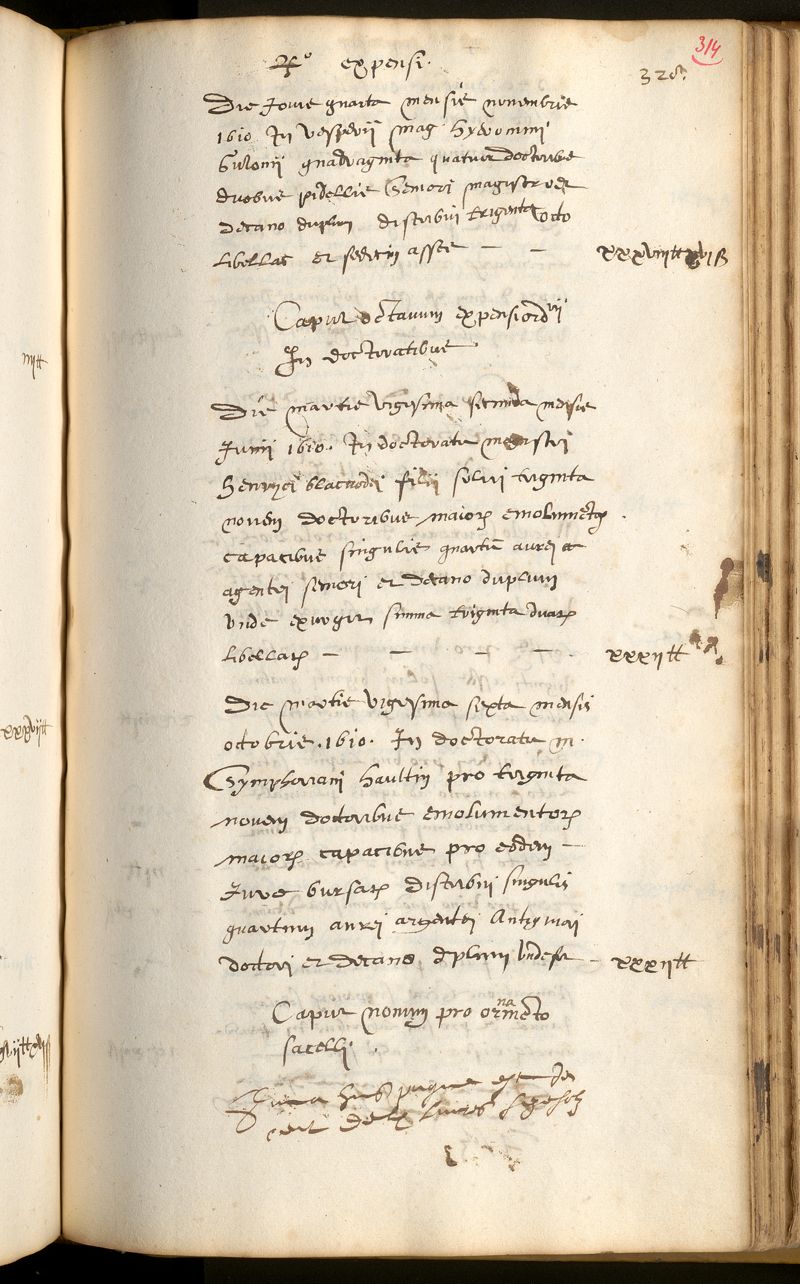 314
328.
expensi.
Die Jovis quarta mensis novembris
1610 In vesperii mag Hyeronimi
quadraginta quatuor doctoribus
duobus pidellis Seniori magistro et
decano duplum distribui triginta octo
libellas et sedecim asses — — xxxviii tt xvi ß
Caput octavum expensiorum
In doctoratibus
Die martis vigesima secunda mensis
Junii 1610. In doctoratu magistri
Henrici blacuodei filii solui triginta
novem doctoribus maiorum emolumentorum
capacibus singulis quartum aurei
agentei seniori et decano duplum
unde exurgit summa triginta duarum
libellarum — — — — xxxii tt
Die martis vigesima sexta mensis
octobris .1610. In doctoratu m.
Symphoriani Haultin pro triginta
novem doctoribus emolumentorum
maiorum capacibus pro eodem —
Jure bursarum distribui singulis
quartum aurei argentei Antiquiori
doctori et decano duplum unde — xxxii tt
Caput nonum pro ornamento
sacelli.
Summa huius pagine est de
cent livres